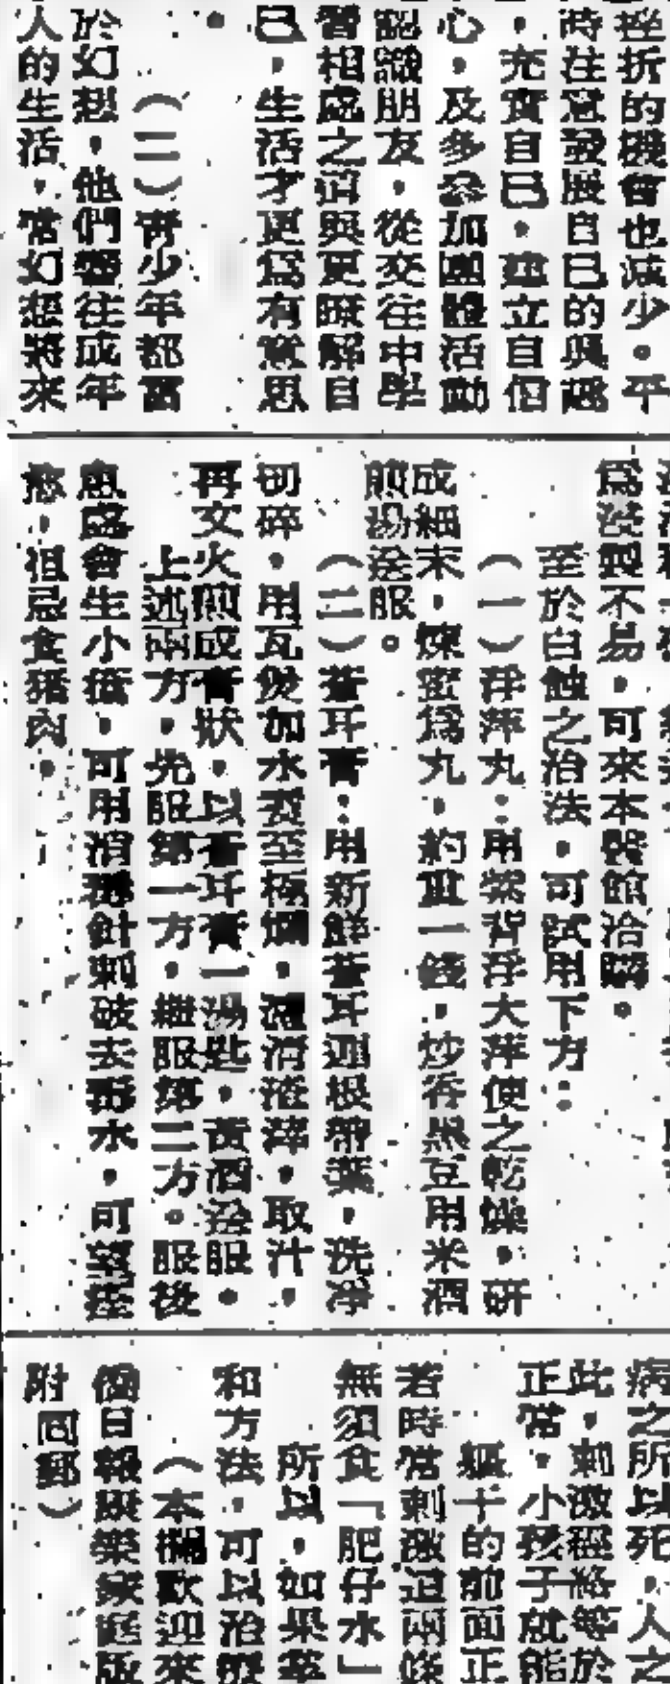 挫折的機會也減少。平
時注意發展自己的興趣
，充實自己，建立自信
心，及多參加團體活動
認識朋友，從交往中學
習相處之道與更瞭解自
己，生活才更爲有意思
（二）青少年都富
於幻想，他們嚮往成年
人的生活，常幻想將來
爲泡製不易，可來本醫館洽購。
至於白蝕之治法，可試用下方：
（一）浮萍丸：用紫背浮大萍使之乾燥，研
成細末，煉蜜爲丸，約重一錢，炒香黑豆用米酒
煎湯送服。
（二）蒼耳膏：用新鮮蒼耳連根帶葉，洗淨
切碎，用瓦煲加水煮至極爛，濾清渣滓，取汁，
再文火煎成膏狀，以蒼耳膏一湯匙，黃酒送服。
上述兩方，先服第一方，繼服第二方。服後
患處會生小瘡，可用消毒針刺破去毒水，可望痊
愈，但忌食豬肉。
病之所以死，人之
此，刺激經絡等於
正常，小孩子就能
軀干的前面正
若時常刺激這兩條
無須食「肥仔水」
所以，如果
和方法，可以治療
（本欄歡迎來
僑日報康樂家庭版
附回郵）